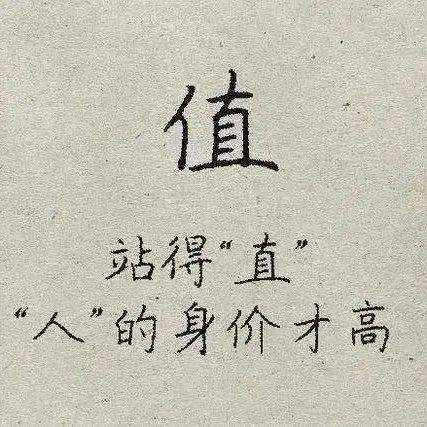 值
站得“直”
“人”的身价才高